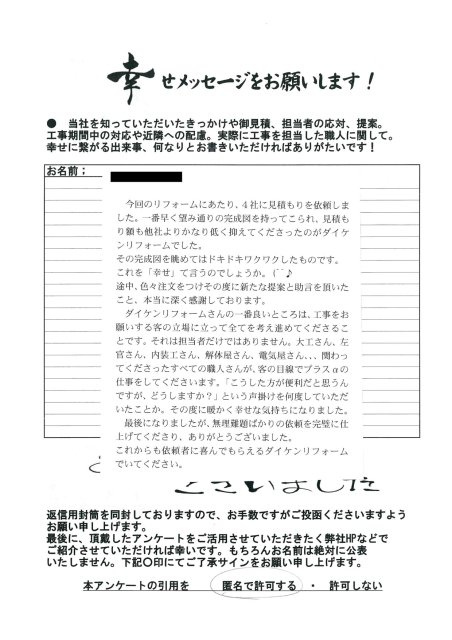 幸せメッセージをお願いします！
● 当社を知っていただいたきっかけや御見積、担当者の応対、提案。
工事期間中の対応や近隣への配慮。実際に工事を担当した職人に関して。
幸せに繋がる出来事、何なりとお書きいただければありがたいです！
お名前；
今回のリフォームにあたり、４社に見積もりを依頼しま
した。一番早く望み通りの完成図を持ってこられ、見積も
り額も他社よりかなり低く抑えてくださったのがダイケ
ンリフォームでした。
その完成図を眺めてはドキドキワクワクしたものです。
これを「幸せ」て言うのでしょうか。(⌒⌒♪
途中、色々注文をつけその度に新たな提案と助言を頂いた
こと、本当に深く感謝しております。
ダイケンリフォームさんの一番良いところは、工事をお
願いする客の立場に立って全てを考え進めてくださるこ
とです。それは担当者だけではありません。大工さん、左
官さん、内装工さん、解体屋さん、電気屋さん、、、関わっ
てくださったすべての職人さんが、客の目線でプラスαの
仕事をしてくださいます。「こうした方が便利だと思うん
ですが、どうしますか？」という声掛けを何度していただ
いたことか。その度に暖かく幸せな気持ちになりました。
最後になりましたが、無理難題ばかりの依頼を完璧に仕
上げてくださり、ありがとうございました。
これからも依頼者に喜んでもらえるダイケンリフォーム
でいてください。
ございました
返信用封筒を同封しておりますので、お手数ですがご投函くださいますよう
お願い申し上げます。
最後に、頂戴したアンケートをご活用させていただきたく弊社HPなどで
ご紹介させていただければ幸いです。もちろんお名前は絶対に公表
いたしません。下記〇印にてご了承サインをお願い申し上げます。
本アンケートの引用を 匿名で許可する ・ 許可しない